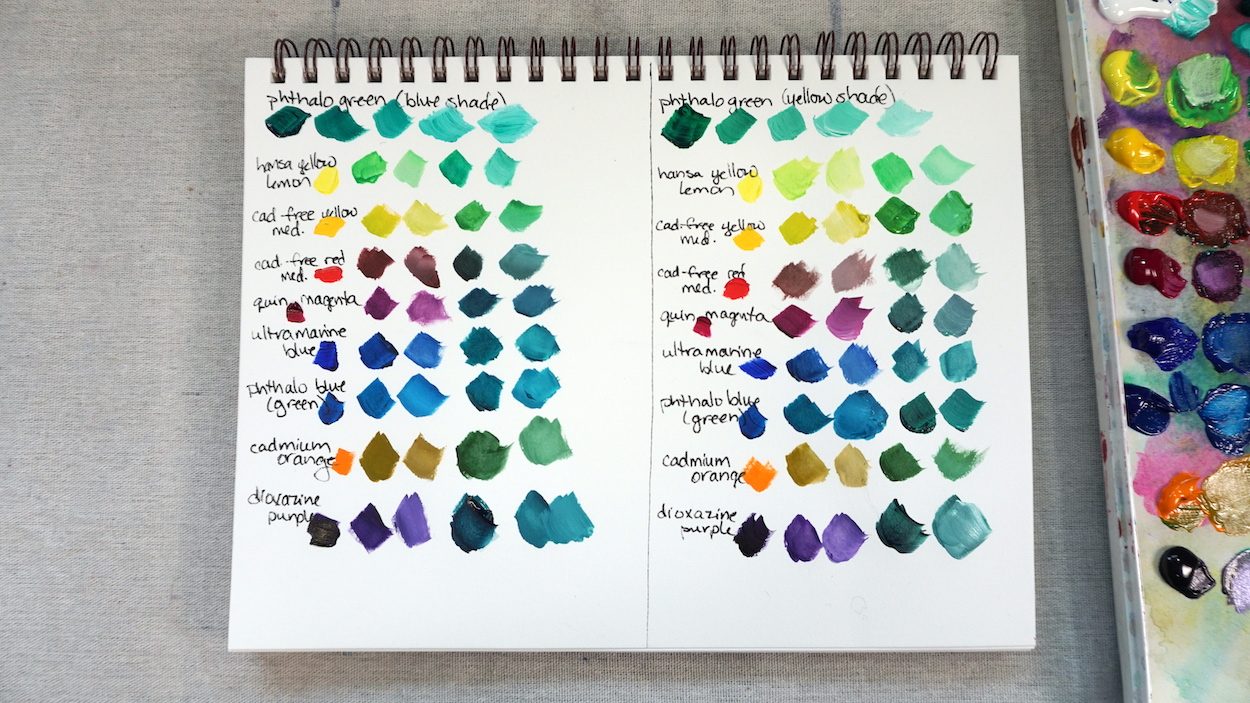 phthalo green (blue shade)
hansa yellow
lemon
cad-free yellow
med.
cad-free red
med.
quin magenta
ultramarine
blue
phthalo blue
(green)
cadmium
orange
dioxazine
purple
phthalo green (yellow shade)
hansa yellow
lemon
cad-free yellow
med.
cad-free red
med.
quin magenta
ultramarine
blue
phthalo blue
(green)
cadmium
orange
dioxazine
purple